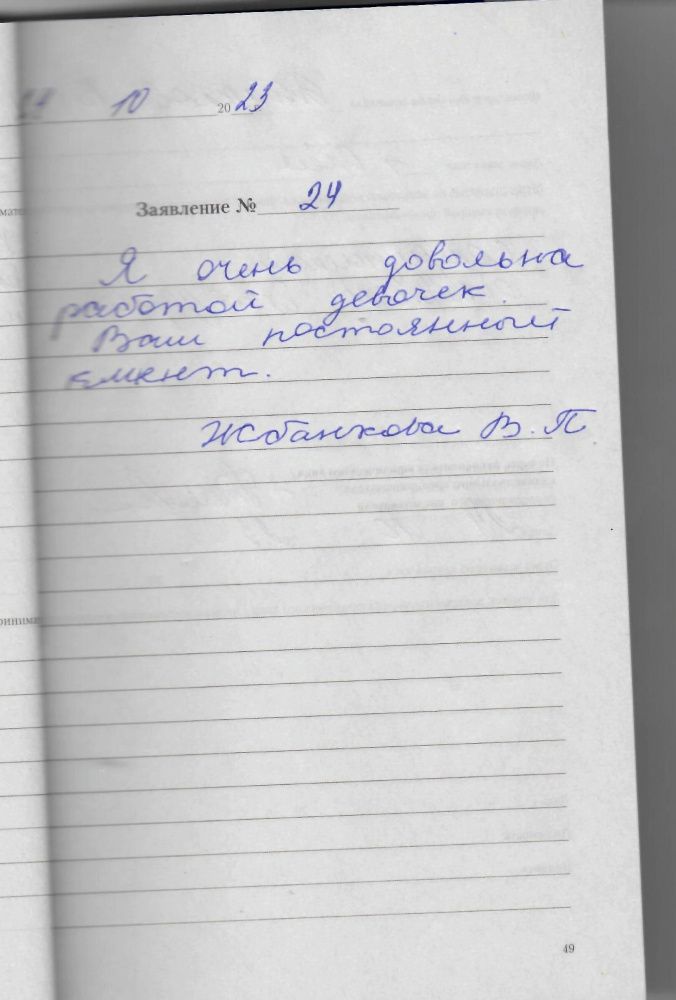 10 2023
Заявление № 24
Я очень довольна
работой девочек.
Ваш постоянный
клиент.
Жбанкова В.П
49